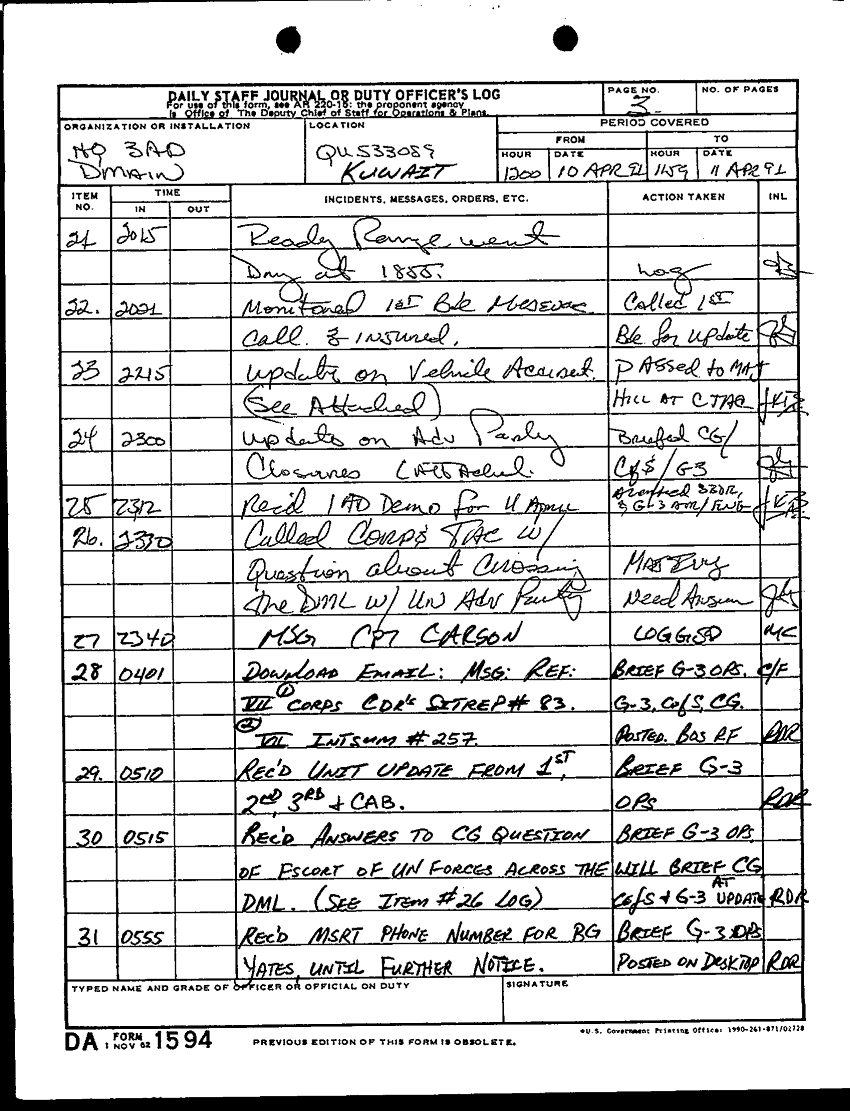 DAILY STAFF JOURNAL OR DUTY OFFICER'S LOG
For use of this form, see AR 220-15; the proponent agency
is Office of The Deputy Chief of Staff for Operations & Plans.
PAGE NO.
3
NO. OF PAGES
ORGANIZATION OR INSTALLATION
HQ 3AD
DMAIN
LOCATION
QU533089
KUWAIT
PERIOD COVERED
FROM
TO
HOUR DATE HOUR DATE
1200 10 APR 91 1159 11 APR 91
ITEM NO. TIME INCIDENTS, MESSAGES, ORDERS, ETC. ACTION TAKEN INL
IN OUT
21 2015 Ready Range went
Dry at 1855. Log
22. 2021 Monitored 1st Bde Called 1ST
call. & insured. Bde for update
23 2215 update on Vehicle Accident. PAssed to MAJ
(See Attached) HILL AT CTAC
24 2300 updates on Adv Party Briefed CG/
Closures (Attached. CofS/G3
25 2312 Rec'd 1AD Demo for 11 April
& G-3 AIR/ENG
26. 2330 Called CORPS TAC W/
Question about Crossing
the DML W/ UN Adv Party Need Answer
27 2340 MSG CPT CARSON LOGGED MC
28 0401 DOWNLOAD EMAIL: MSG: REF: BRIEF G-3 OPS, C/F
VII ① CORPS CDR's SITREP# 83. G-3, CofS, CG.
② VII INTSUM # 257. POSTED. BDS RF RDR
29. 0510 REC'D UNIT UPDATE FROM 1ST, BRIEF G-3
2ND, 3RD + CAB. OPS RDR
30 0515 REC'D ANSWERS TO CG QUESTION BRIEF G-3 OPS
OF ESCORT OF UN FORCES ACROSS THE WILL BRIEF CG
DML. (SEE ITEM #26 LOG) CofS & G-3 AT UPDATE RDR
31 0555 REC'D MSRT PHONE NUMBER FOR BG BRIEF G-3 OPS
YATES, UNTIL FURTHER NOTICE. POSTED ON DESKTOP RDR
TYPED NAME AND GRADE OF OFFICER OR OFFICIAL ON DUTY
SIGNATURE
DA FORM 1 NOV 62 1594
PREVIOUS EDITION OF THIS FORM IS OBSOLETE.
*U.S. Government Printing Office: 1990-261-871/02728